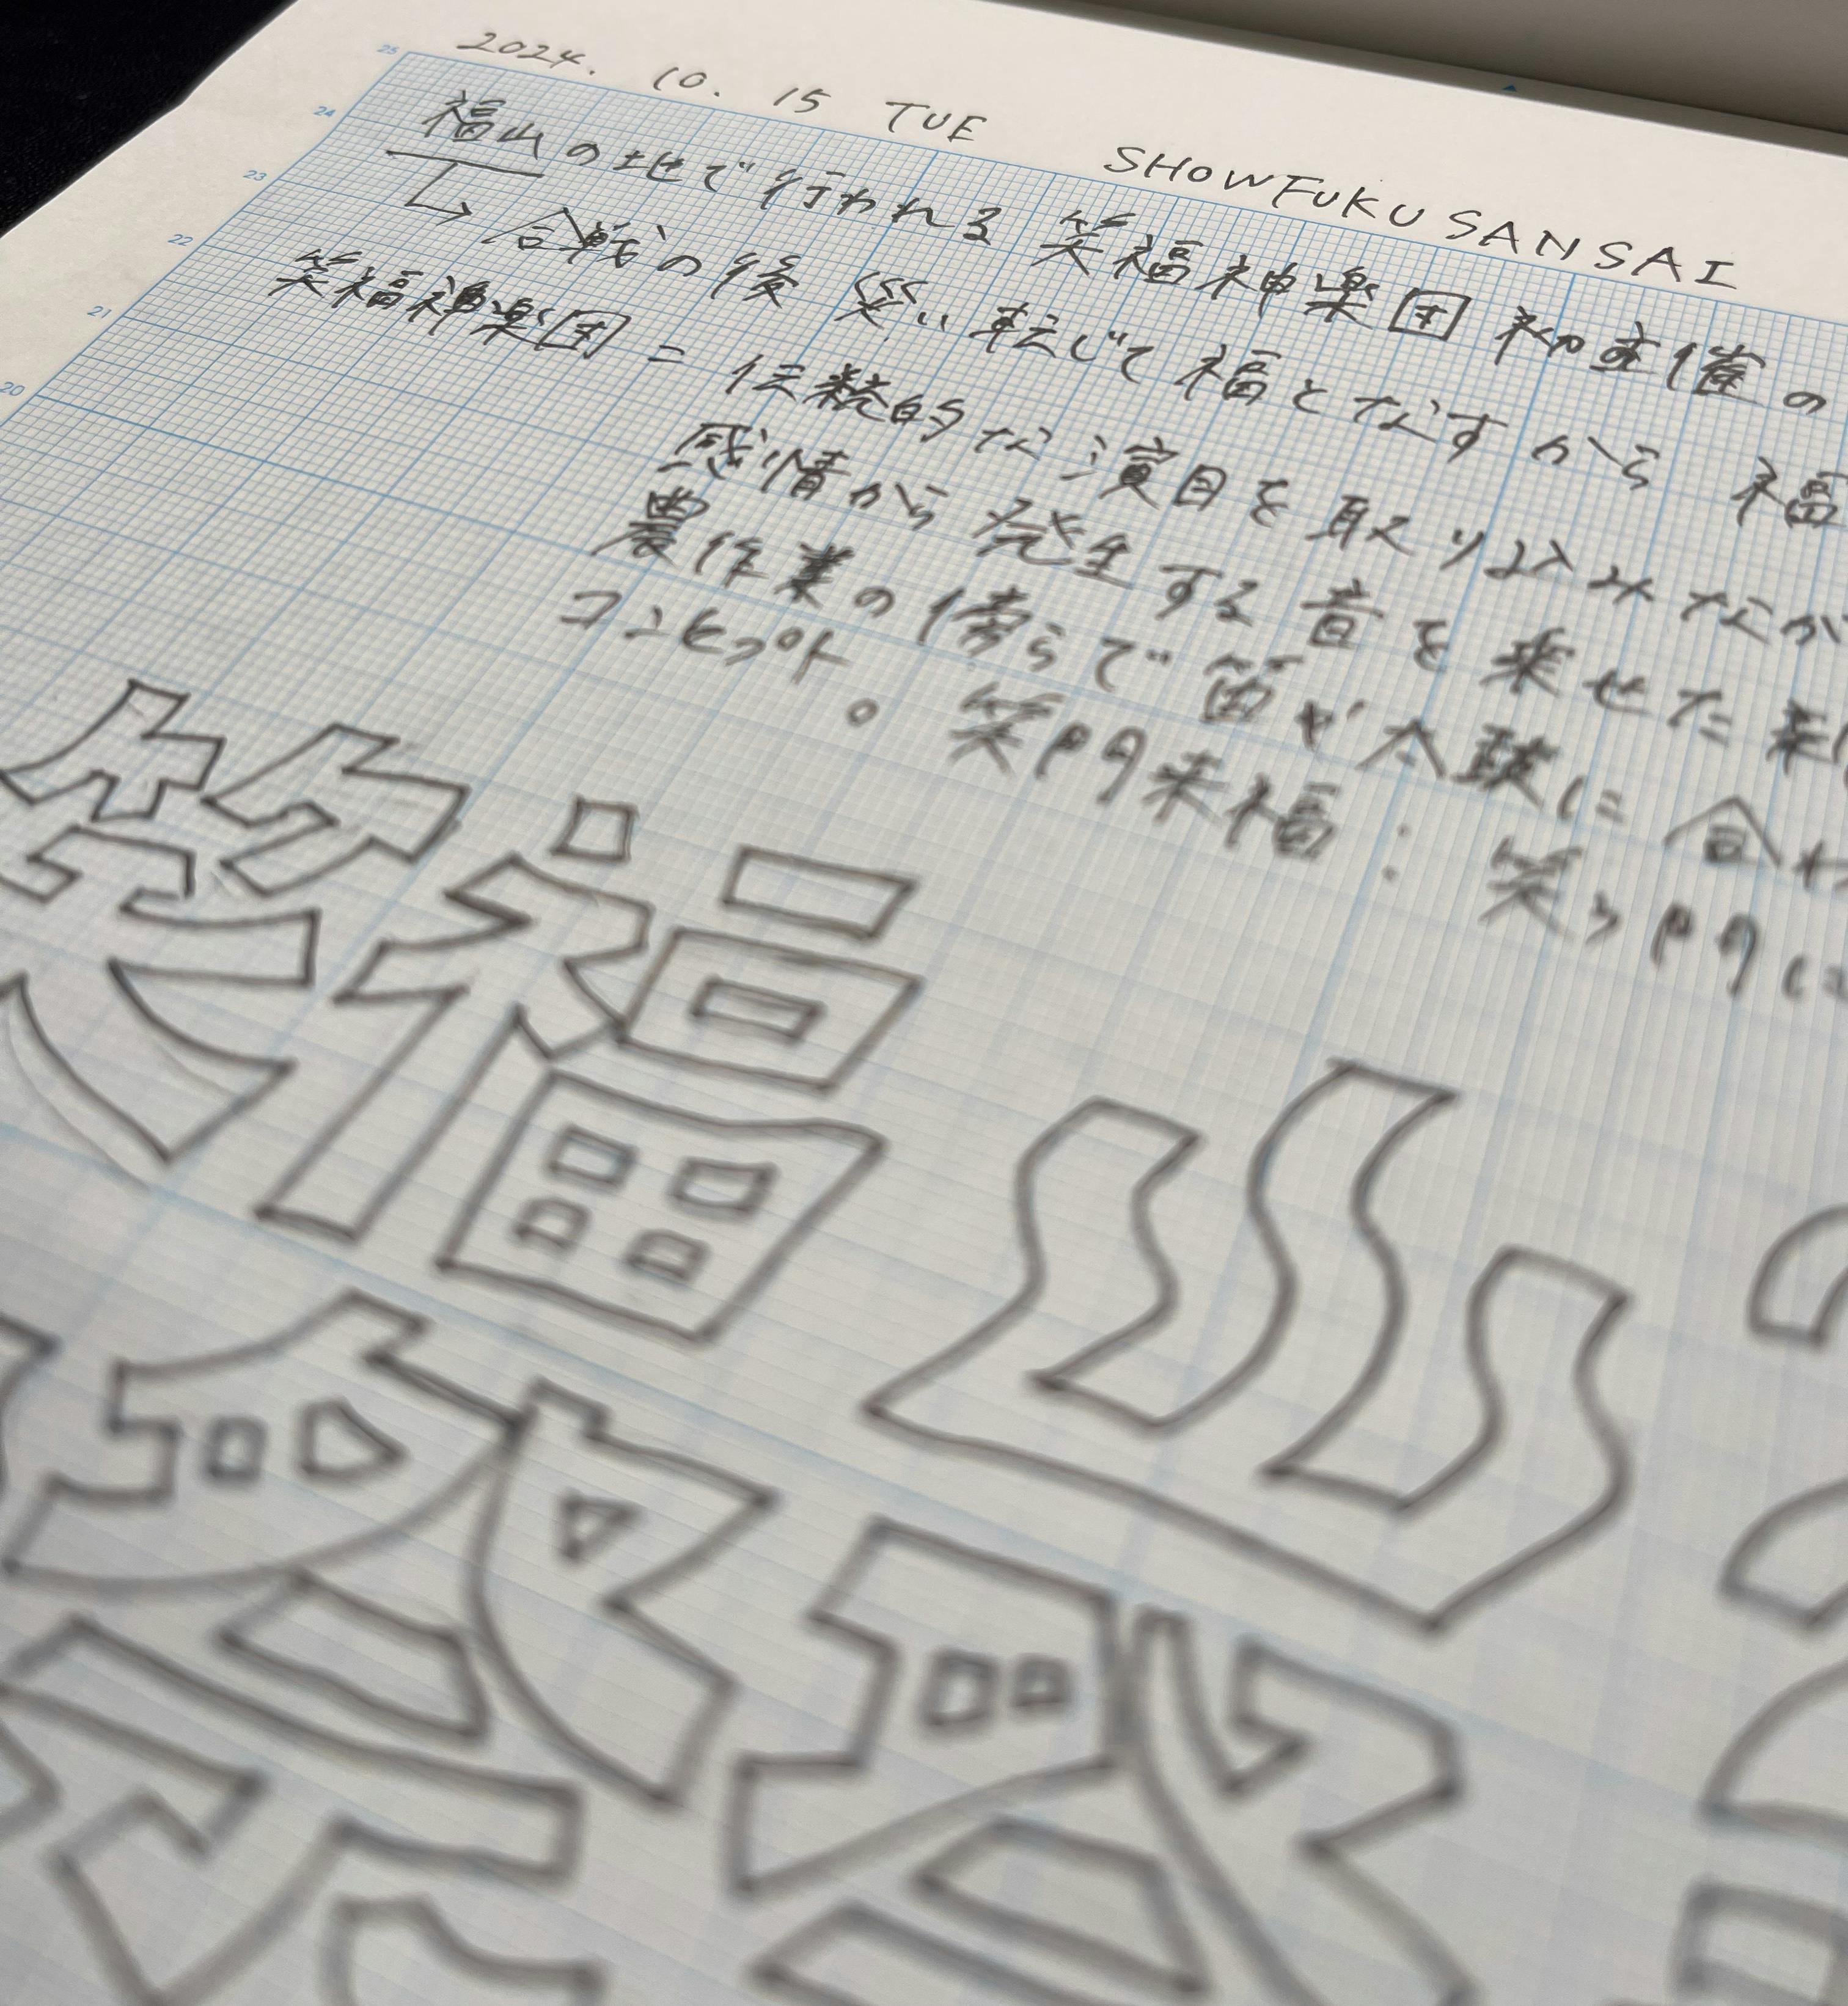 2024. 10. 15 TUE SHOWFUKUSANSAI
福山の地で行われる 笑福神楽団 初主催の
↳ 合戦の後 災い転じて福となすから 福
笑福神楽団 = 伝統的な演目を取り込みなが
感情から発生する音を乗せた
農作業の傍らで笛や太鼓に合わ
コンセプト。笑門来福: 笑う門に
25
24
23
22
21
20
笑福山
祭
祭